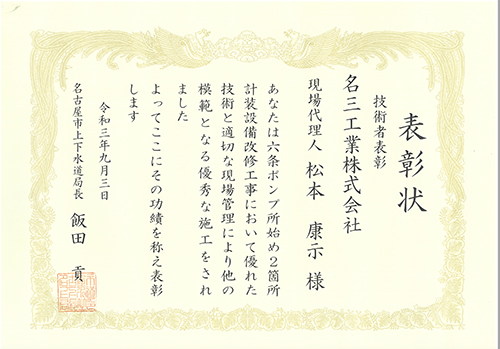 表彰状
技術者表彰
名三工業株式会社
現場代理人 松本 康示 様
あなたは六条ポンプ所始め2箇所
計装設備改修工事において優れた
技術と適切な現場管理により他の
模範となる優秀な施工をされ
ました
よってここにその功績を称え表彰
します
令和三年九月三日
名古屋市上下水道局長 飯田 貢